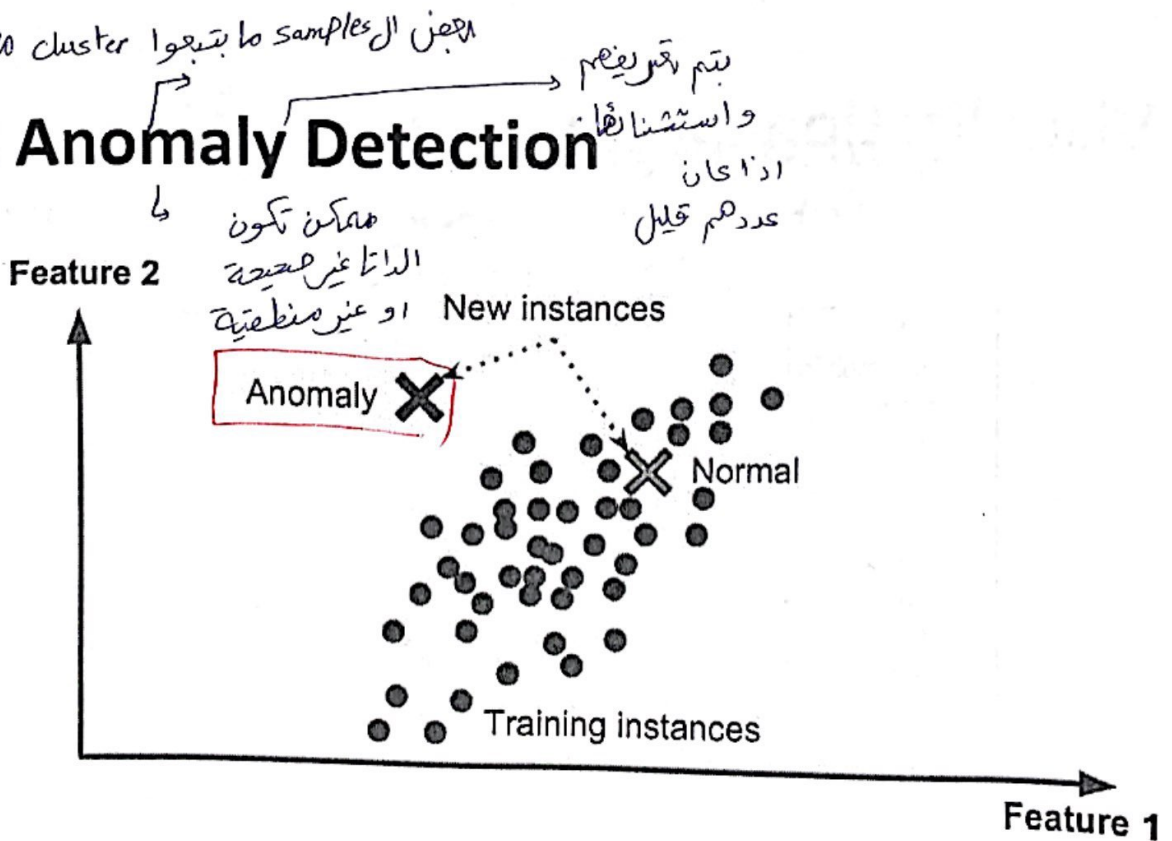 بعض ال samples ما بتبعوا cluster
بتم تعريفهم
واستثنائها
اذا كان
عددهم قليل
Anomaly Detection
ممكن تكون
الداتا غير صحيحة
او غير منطقية
Feature 2
New instances
Anomaly
Normal
Training instances
Feature 1